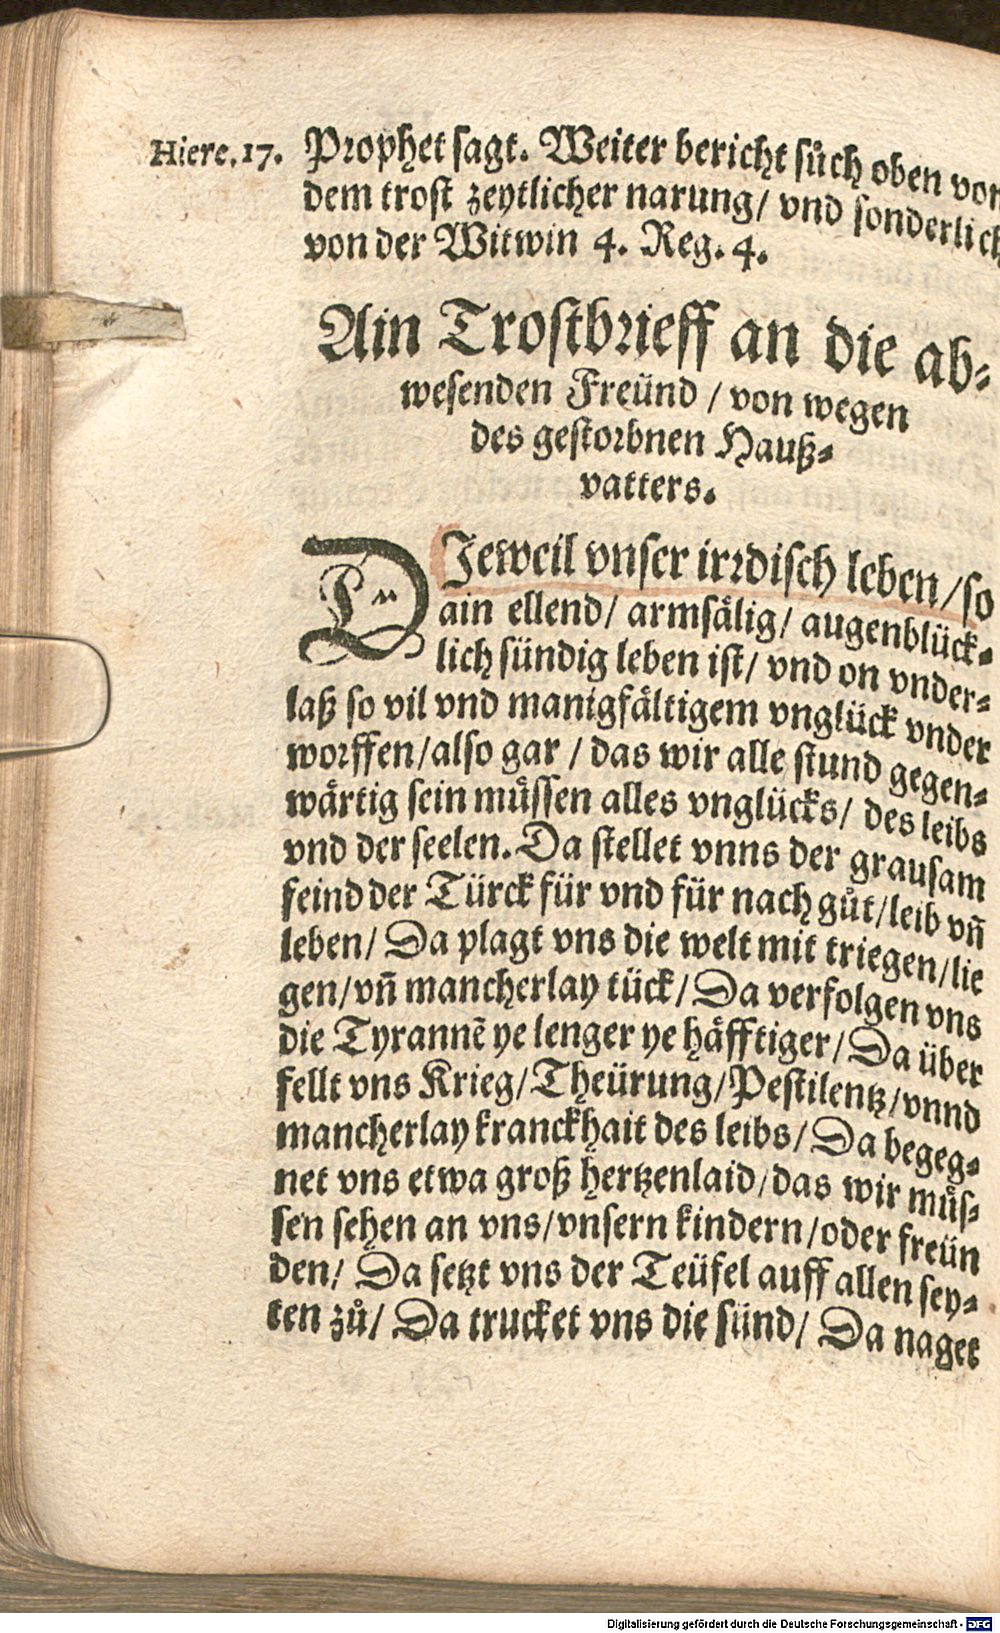 Hiere. 17. Prophet sagt. Weiter bericht sůch oben von
dem trost zeytlicher narung/ vnd sonderlich
von der Witwin 4. Reg. 4.
Ain Trostbrieff an die ab⸗
wesenden Freünd / von wegen
des gestorbnen Hauß⸗
vatters.
DJeweil vnser irrdisch leben/ so
ain ellend/ armsälig/ augenblück⸗
lich sündig leben ist/ vnd on vnder⸗
laß so vil vnd manigfältigem vnglück vnder
worffen/ also gar / das wir alle stund gegen⸗
wärtig sein müssen alles vnglücks/ des leibs
vnd der seelen. Da stellet vnns der grausam
feind der Türck für vnd für nach gůt/ leib vn̄
leben/ Da plagt vns die welt mit triegen/ lie
gen/ vn̄ mancherlay tück/ Da verfolgen vns
die Tyrannē ye lenger ye häfftiger/ Da über
fellt vns Krieg/ Theürung/ Pestilentz/ vnnd
mancherlay kranckhait des leibs/ Da begeg⸗
net vns etwa groß hertzenlaid/ das wir müs⸗
sen sehen an vns/ vnsern kindern/ oder freün
den/ Da setzt vns der Teüfel auff allen sey⸗
ten zů/ Da trucket vns die sünd/ Da naget
Digitalisierung gefördert durch die Deutsche Forschungsgemeinschaft - DFG